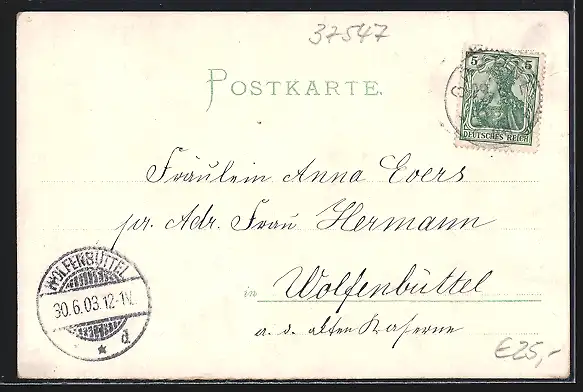 37547
POSTKARTE.
5 5
DEUTSCHES REICH
Fräulein Anna Evers
pr. Adr. Frau Hermann
in Wolfenbüttel
a. d. alten Kaserne
WOLFENBÜTTEL
30.6.03.12-1N.
* d
€25,-